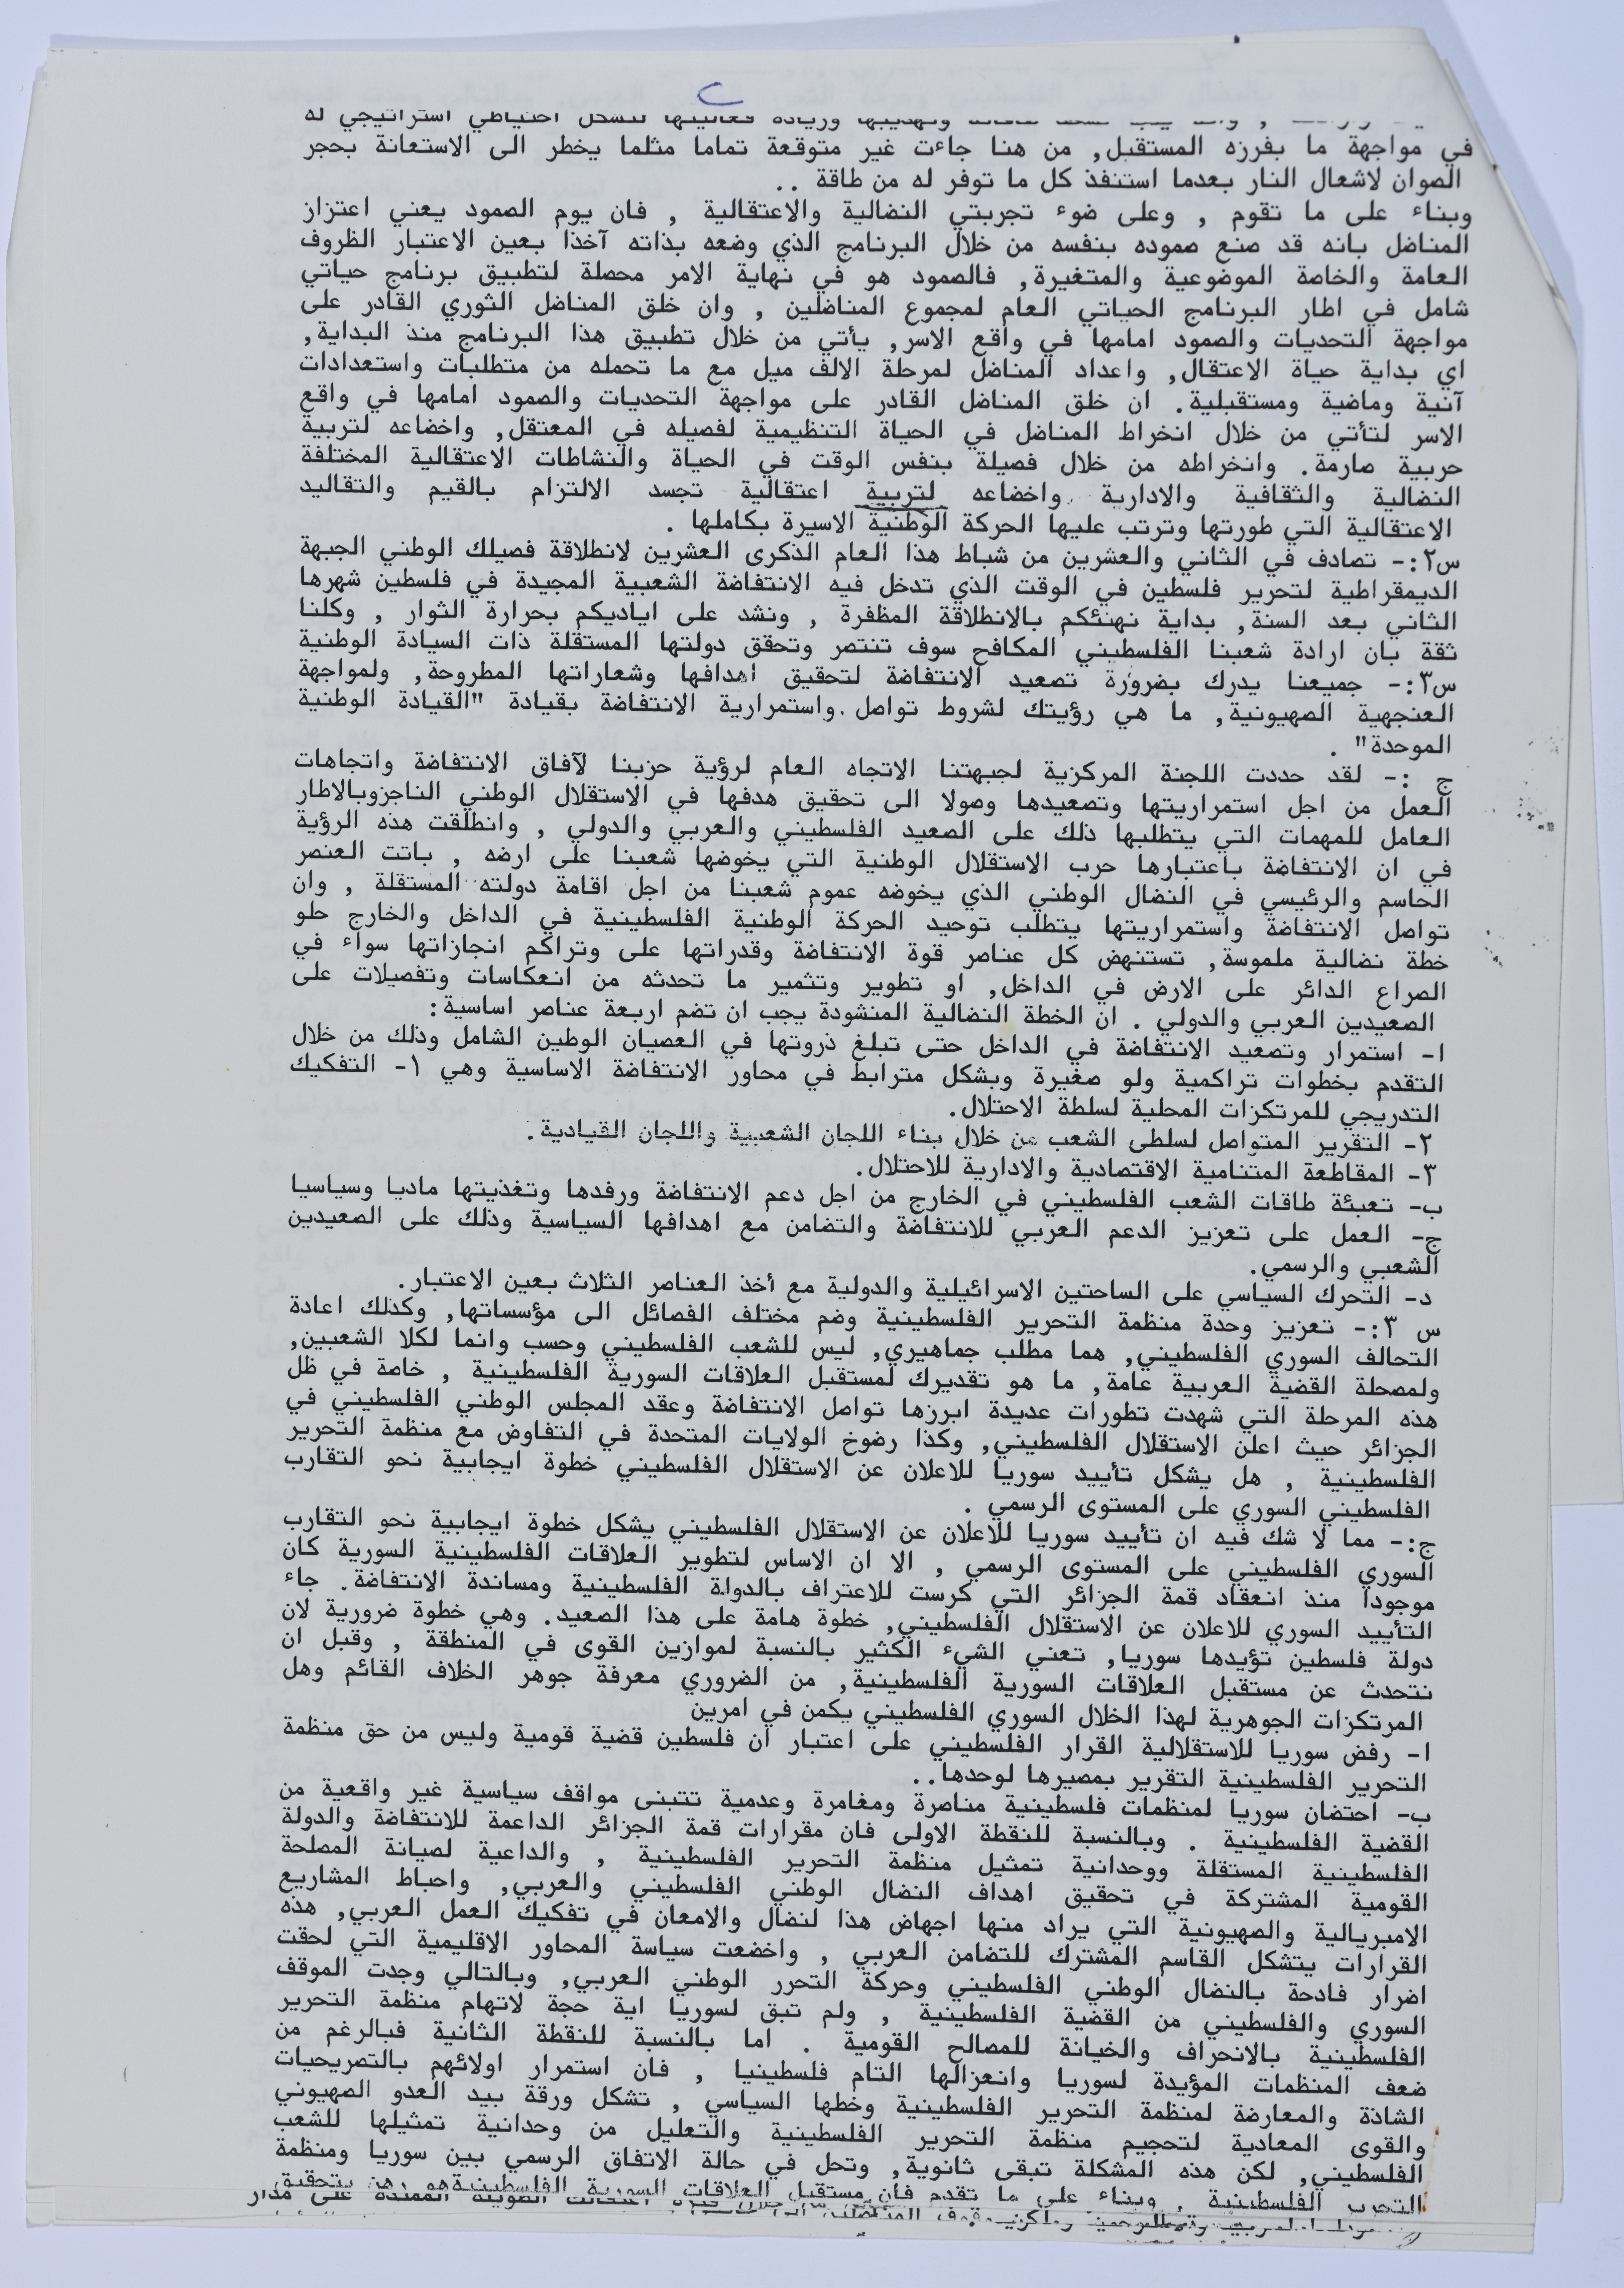 وتهذيبها وزيادة فعاليتها لتشكل احتياطي استراتيجي له
في مواجهة ما يفرزه المستقبل, من هنا جاءت غير متوقعة تماما مثلما يخطر الى الاستعانة بحجر
الصوان لاشعال النار بعدما استنفذ كل ما توفر له من طاقة ..
وبناء على ما تقوم , وعلى ضوء تجربتي النضالية والاعتقالية , فان يوم الصمود يعني اعتزاز
المناضل بانه قد صنع صموده بنفسه من خلال البرنامج الذي وضعه بذاته آخذا بعين الاعتبار الظروف
العامة والخاصة الموضوعية والمتغيرة, فالصمود هو في نهاية الامر محصلة لتطبيق برنامج حياتي
شامل في اطار البرنامج الحياتي العام لمجموع المناضلين , وان خلق المناضل الثوري القادر على
مواجهة التحديات والصمود امامها في واقع الاسر, يأتي من خلال تطبيق هذا البرنامج منذ البداية,
اي بداية حياة الاعتقال, واعداد المناضل لمرحلة الالف ميل مع ما تحمله من متطلبات واستعدادات
آنية وماضية ومستقبلية. ان خلق المناضل القادر على مواجهة التحديات والصمود امامها في واقع
الاسر لتأتي من خلال انخراط المناضل في الحياة التنظيمية لفصيله في المعتقل, واخضاعه لتربية
حربية صارمة. وانخراطه من خلال فصيلة بنفس الوقت في الحياة والنشاطات الاعتقالية المختلفة
النضالية والثقافية والادارية واخضاعه لتربية اعتقالية تجسد الالتزام بالقيم والتقاليد
الاعتقالية التي طورتها وترتب عليها الحركة الوطنية الاسيرة بكاملها .
س٢:- تصادف في الثاني والعشرين من شباط هذا العام الذكرى العشرين لانطلاقة فصيلك الوطني الجبهة
الديمقراطية لتحرير فلسطين في الوقت الذي تدخل فيه الانتفاضة الشعبية المجيدة في فلسطين شهرها
الثاني بعد السنة, بداية نهنئكم بالانطلاقة المظفرة , ونشد على اياديكم بحرارة الثوار , وكلنا
ثقة بان ارادة شعبنا الفلسطيني المكافح سوف تنتصر وتحقق دولتها المستقلة ذات السيادة الوطنية
س٣:- جميعنا يدرك بضرورة تصعيد الانتفاضة لتحقيق اهدافها وشعاراتها المطروحة, ولمواجهة
العنجهية الصهيونية, ما هي رؤيتك لشروط تواصل واستمرارية الانتفاضة بقيادة "القيادة الوطنية
الموحدة" .
ج :- لقد حددت اللجنة المركزية لجبهتنا الاتجاه العام لرؤية حزبنا لآفاق الانتفاضة واتجاهات
العمل من اجل استمراريتها وتصعيدها وصولا الى تحقيق هدفها في الاستقلال الوطني الناجزوبالاطار
العامل للمهمات التي يتطلبها ذلك على الصعيد الفلسطيني والعربي والدولي , وانطلقت هذه الرؤية
في ان الانتفاضة باعتبارها حرب الاستقلال الوطنية التي يخوضها شعبنا على ارضه , باتت العنصر
الحاسم والرئيسي في النضال الوطني الذي يخوضه عموم شعبنا من اجل اقامة دولته المستقلة , وان
تواصل الانتفاضة واستمراريتها يتطلب توحيد الحركة الوطنية الفلسطينية في الداخل والخارج حلو
خطة نضالية ملموسة, تستنهض كل عناصر قوة الانتفاضة وقدراتها على وتراكم انجازاتها سواء في
الصراع الدائر على الارض في الداخل, او تطوير وتثمير ما تحدثه من انعكاسات وتفصيلات على
الصعيدين العربي والدولي . ان الخطة النضالية المنشودة يجب ان تضم اربعة عناصر اساسية:
ا- استمرار وتصعيد الانتفاضة في الداخل حتى تبلغ ذروتها في العصيان الوطين الشامل وذلك من خلال
التقدم بخطوات تراكمية ولو صغيرة وبشكل مترابط في محاور الانتفاضة الاساسية وهي ١- التفكيك
التدريجي للمرتكزات المحلية لسلطة الاحتلال.
٢- التقرير المتواصل لسلطى الشعب من خلال بناء اللجان الشعبية واللجان القيادية.
٣- المقاطعة المتنامية الاقتصادية والادارية للاحتلال.
ب- تعبئة طاقات الشعب الفلسطيني في الخارج من اجل دعم الانتفاضة ورفدها وتغذيتها ماديا وسياسيا
ج- العمل على تعزيز الدعم العربي للانتفاضة والتضامن مع اهدافها السياسية وذلك على الصعيدين
الشعبي والرسمي.
د- التحرك السياسي على الساحتين الاسرائيلية والدولية مع أخذ العناصر الثلاث بعين الاعتبار.
س ٣:- تعزيز وحدة منظمة التحرير الفلسطينية وضم مختلف الفصائل الى مؤسساتها, وكذلك اعادة
التحالف السوري الفلسطيني, هما مطلب جماهيري, ليس للشعب الفلسطيني وحسب وانما لكلا الشعبين,
ولمصحلة القضية العربية عامة, ما هو تقديرك لمستقبل العلاقات السورية الفلسطينية , خاصة في ظل
هذه المرحلة التي شهدت تطورات عديدة ابرزها تواصل الانتفاضة وعقد المجلس الوطني الفلسطيني في
الجزائر حيث اعلن الاستقلال الفلسطيني, وكذا رضوخ الولايات المتحدة في التفاوض مع منظمة التحرير
الفلسطينية , هل يشكل تأييد سوريا للاعلان عن الاستقلال الفلسطيني خطوة ايجابية نحو التقارب
الفلسطيني السوري على المستوى الرسمي .
ج:- مما لا شك فيه ان تأييد سوريا للاعلان عن الاستقلال الفلسطيني يشكل خطوة ايجابية نحو التقارب
السوري الفلسطيني على المستوى الرسمي , الا ان الاساس لتطوير العلاقات الفلسطينية السورية كان
موجودا منذ انعقاد قمة الجزائر التي كرست للاعتراف بالدولة الفلسطينية ومساندة الانتفاضة. جاء
التأييد السوري للاعلان عن الاستقلال الفلسطيني, خطوة هامة على هذا الصعيد. وهي خطوة ضرورية لان
دولة فلسطين تؤيدها سوريا, تعني الشيء الكثير بالنسبة لموازين القوى في المنطقة , وقبل ان
نتحدث عن مستقبل العلاقات السورية الفلسطينية, من الضروري معرفة جوهر الخلاف القائم وهل
المرتكزات الجوهرية لهذا الخلال السوري الفلسطيني يكمن في امرين
ا- رفض سوريا للاستقلالية القرار الفلسطيني على اعتبار ان فلسطين قضية قومية وليس من حق منظمة
التحرير الفلسطينية التقرير بمصيرها لوحدها..
ب- احتضان سوريا لمنظمات فلسطينية مناصرة ومغامرة وعدمية تتبنى مواقف سياسية غير واقعية من
القضية الفلسطينية . وبالنسبة للنقطة الاولى فان مقرارات قمة الجزائر الداعمة للانتفاضة والدولة
الفلسطينية المستقلة ووحدانية تمثيل منظمة التحرير الفلسطينية , والداعية لصيانة المصلحة
القومية المشتركة في تحقيق اهداف النضال الوطني الفلسطيني والعربي, واحباط المشاريع
الامبريالية والصهيونية التي يراد منها اجهاض هذا لنضال والامعان في تفكيك العمل العربي, هذه
القرارات يتشكل القاسم المشترك للتضامن العربي , واخضعت سياسة المحاور الاقليمية التي لحقت
اضرار فادحة بالنضال الوطني الفلسطيني وحركة التحرر الوطني العربي, وبالتالي وجدت الموقف
السوري والفلسطيني من القضية الفلسطينية , ولم تبق لسوريا اية حجة لاتهام منظمة التحرير
الفلسطينية بالانحراف والخيانة للمصالح القومية . اما بالنسبة للنقطة الثانية فبالرغم من
ضعف المنظمات المؤيدة لسوريا وانعزالها التام فلسطينيا , فان استمرار اولائهم بالتصريحيات
الشاذة والمعارضة لمنظمة التحرير الفلسطينية وخطها السياسي , تشكل ورقة بيد العدو الصهيوني
والقوى المعادية لتحجيم منظمة التحرير الفلسطينية والتعليل من وحدانية تمثيلها للشعب
الفلسطيني, لكن هذه المشكلة تبقى ثانوية, وتحل في حالة الاتفاق الرسمي بين سوريا ومنظمة
التحرير الفلسطينية , وبناء على ما تقدم فان مستقبل العلاقات السورية الفلسطينية هو رهن بتحقيق